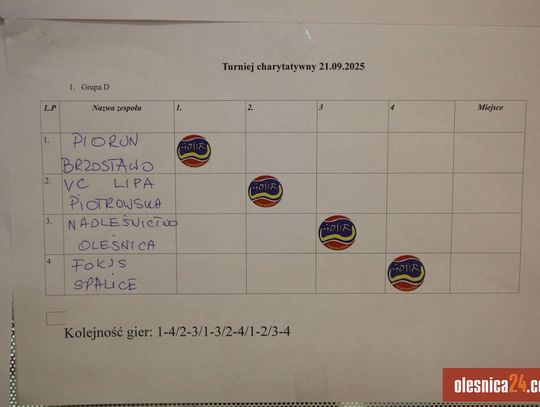 Turniej charytatywny 21.09.2025
1. Grupa D
L.P Nazwa zespołu 1. 2. 3 4 Miejsce
1. PIORUN
BRZOSTAWO
2. VC LIPA
PIOTROWSKA
3. NADLEŚNICTWO
OLEŚNICA
4 FOKIS
SPALICE
Kolejność gier: 1-4/2-3/1-3/2-4/1-2/3-4
olesnica24.co